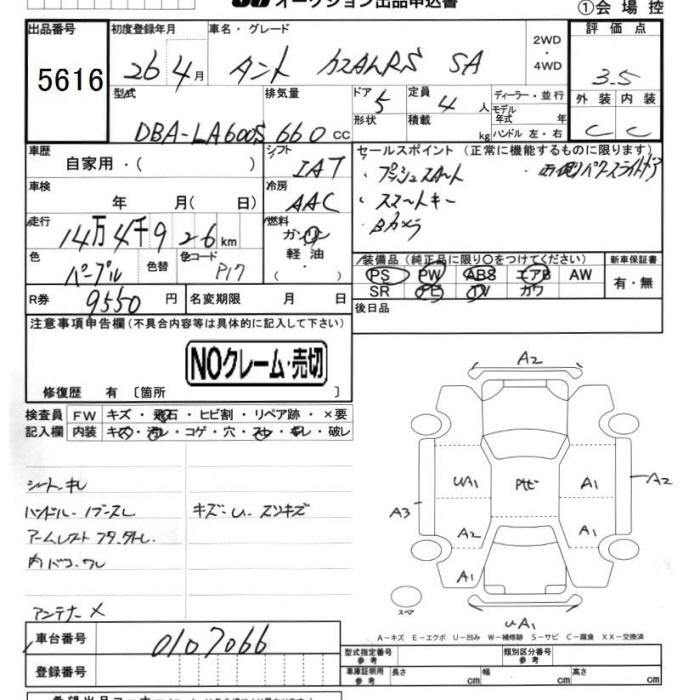 オークション出品申込書
①会場控
出品番号 初度登録年月 車名・グレード 2WD・4WD 評価点
5616 26年4月 タント カスタムRS SA 3.5
外装 内装
C C
型式 排気量 ドア 定員 ディーラー・並行
DBA-LA600S 660cc 5 4人 モデル年式 年
形状 積載 kg ハンドル 左・右
車歴 シフト セールスポイント(正常に機能するものに限ります)
自家用・( ) IAT ・プッシュスタート ・両側パワースライドドア
車検 冷房 ・スマートキー
年 月( 日) AAC ・Bカメラ
走行 燃料
14万4千926km ガソリン・軽油・( )
色 色替 色コード 装備品(純正品に限り○をつけてください) 新車保証書
パープル P17 PS PW ABS エアB AW 有・無
SR ナビ TV カワ
R券 9550円 名変期限 月 日 後日品
注意事項申告欄(不具合内容等は具体的に記入して下さい)
NOクレーム・売切
修復歴 有〔箇所 〕
検査員 FW キズ・飛石・ヒビ割・リペア跡・×要
記入欄 内装 キズ・汚レ・コゲ・穴・スレ・キレ・破レ
シートキレ
キズ・U・スリキズ
内ドコワレ
アンテナ×
A2
UA1 Rサビ A1 A2
A3
A2 A1
A1
スペア
UA1
A-キズ E-エクボ U-凹み W-補修跡 S-サビ C-腐食 XX-交換済
車台番号 0107066
型式指定番号 参考 類別区分番号 参考
車庫証明用 参考 長さ cm 幅 cm 高さ cm
登録番号